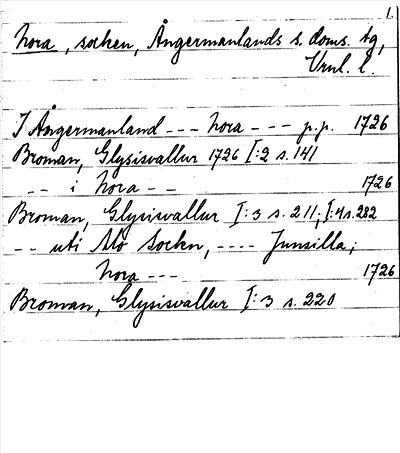 1.
Nora, socken, Ångermanlands s. doms. tg,
Vnl. l.
I Ångermanland --- Nora --- p.p. 1726
Broman, Glysisvallur 1726 I:2 s. 141
-- i Nora -- 1726
Broman, Glysisvallur I:3 s. 211; I:4 s. 282
-- uti Mo Sockn, ---- Junsilla;
Nora --- 1726
Broman, Glysisvallur I:3 s. 220